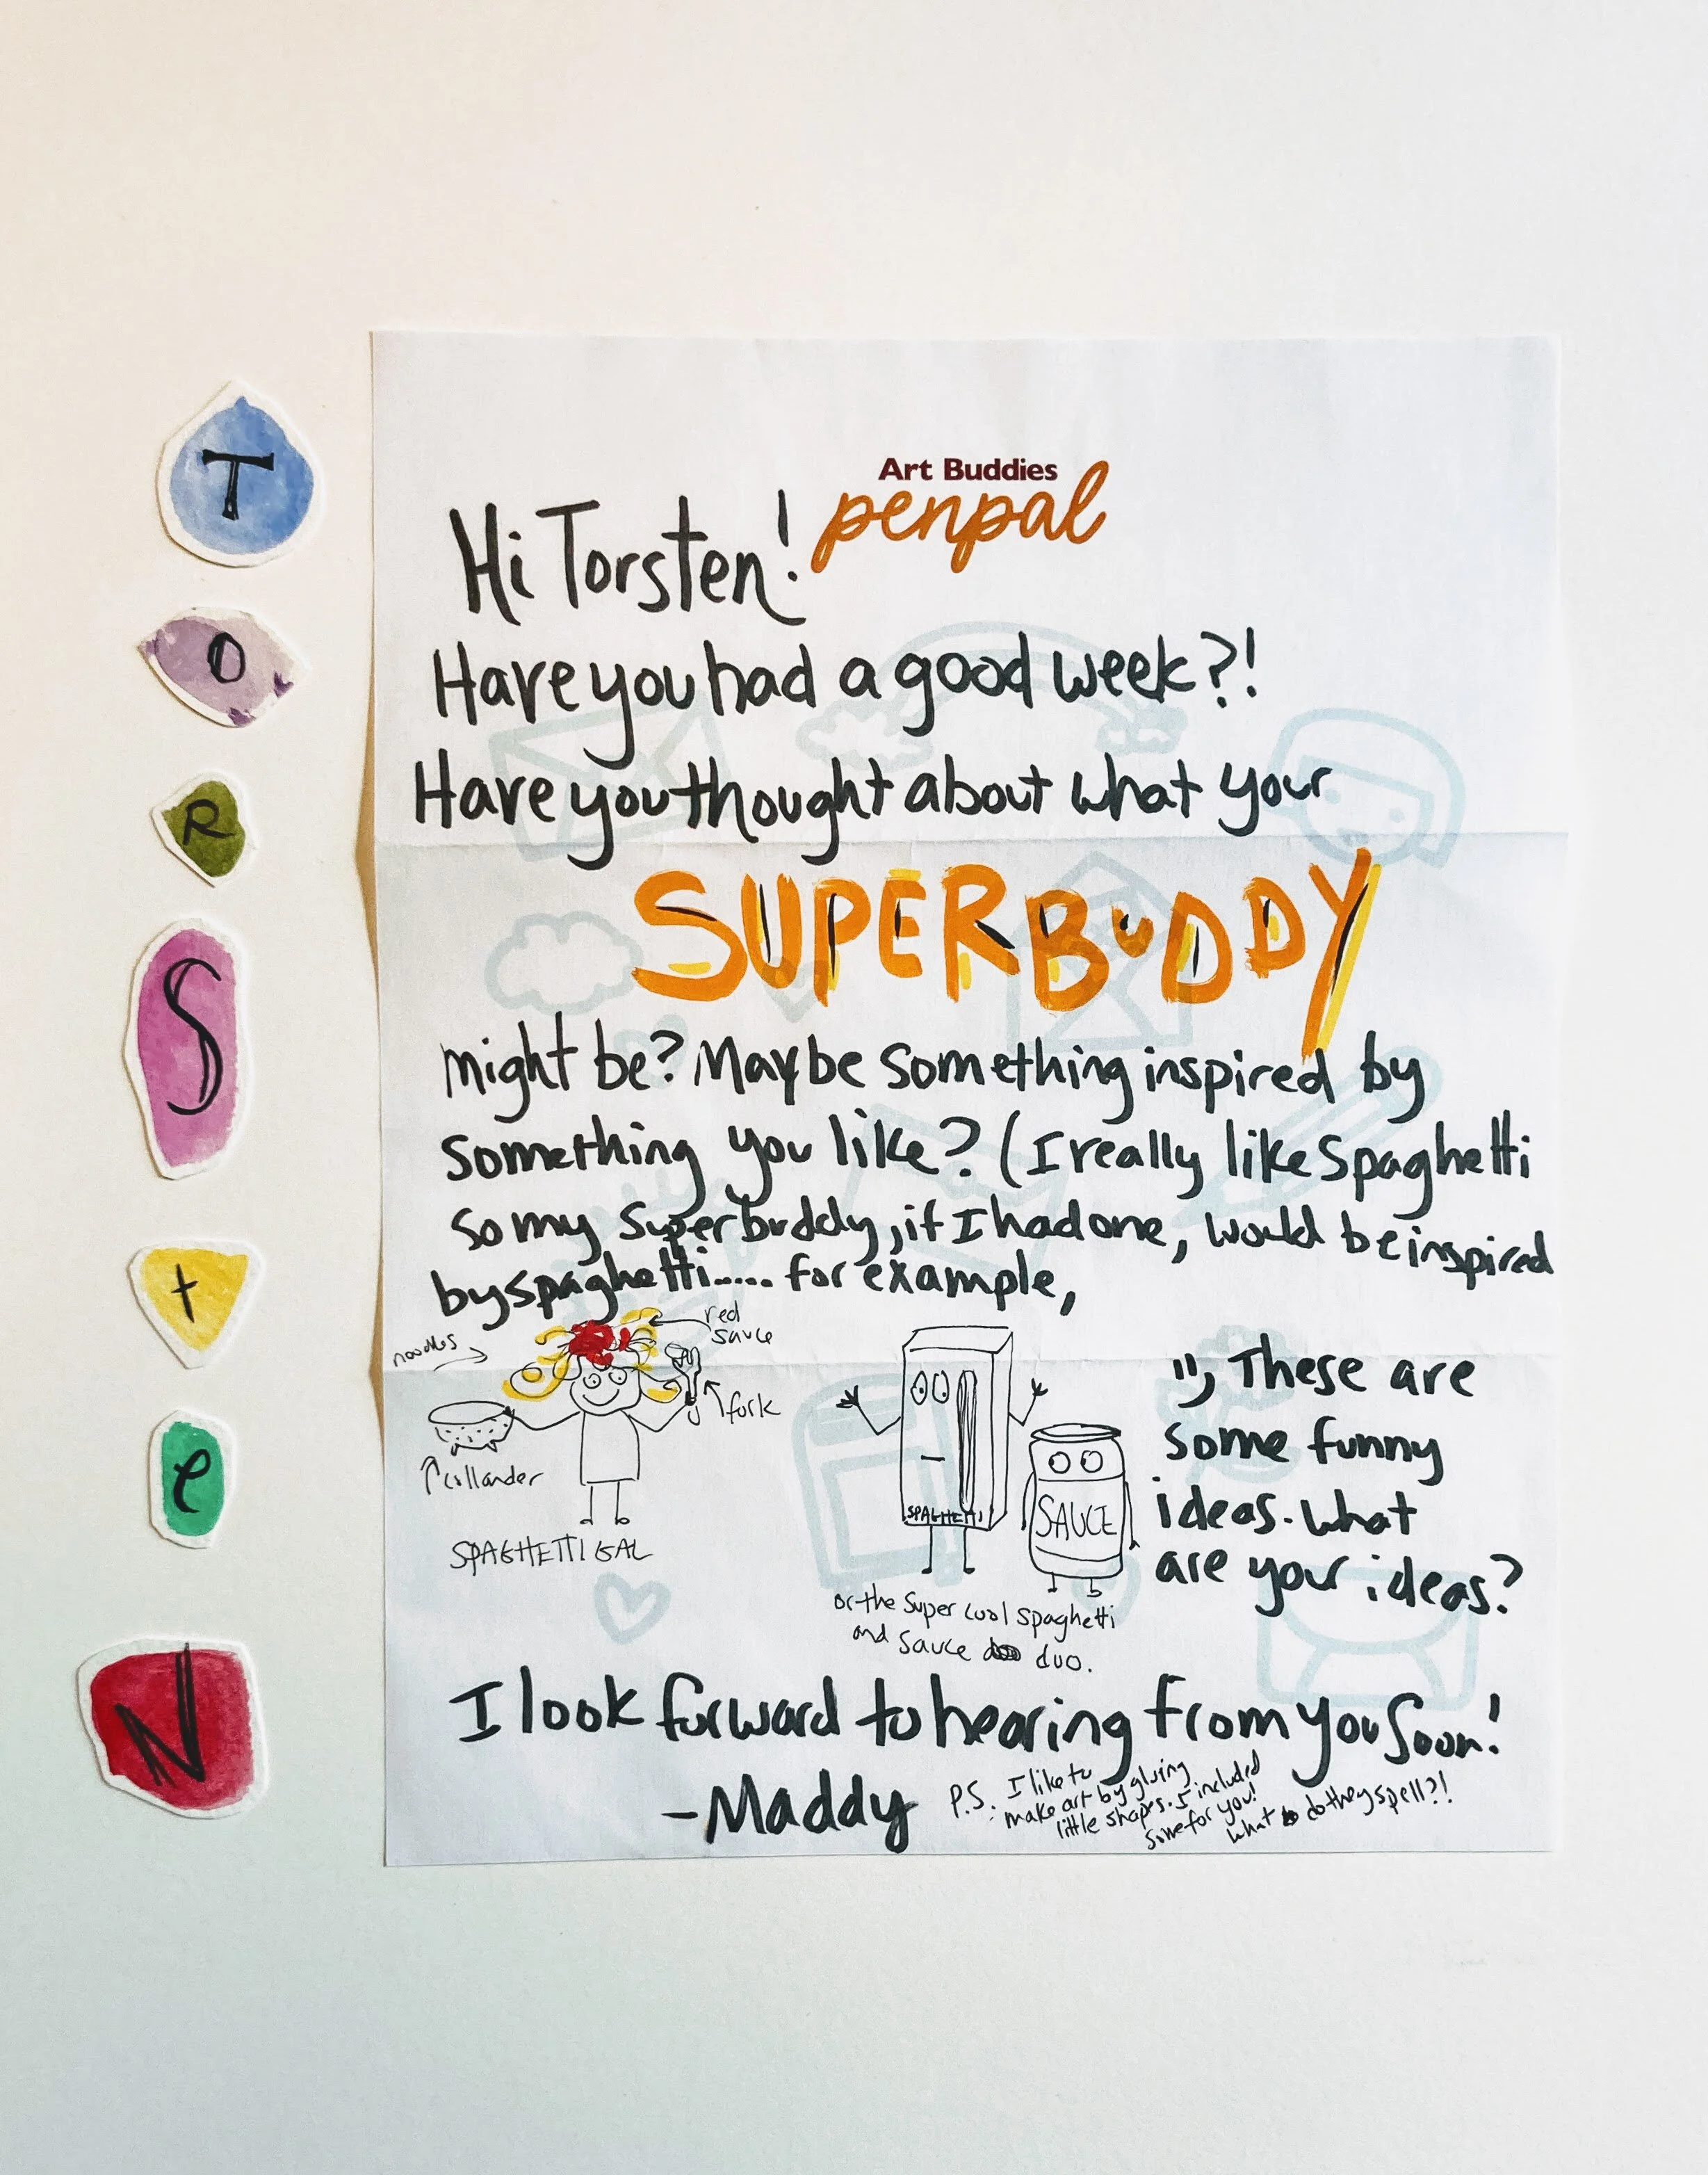 T
O
R
S
t
e
N
Art Buddies
penpal
Hi Torsten!
Have you had a good week?!
Have you thought about what your
SUPERBUDDY
might be? Maybe something inspired by
something you like? (I really like spaghetti
so my superbuddy, if I had one, would be inspired
by spaghetti..... for example,
noodles
red
sauce
fork
collander
SPAGHETTI GAL
SPAGHETTI
SAUCE
or the super cool spaghetti
and sauce duo.
These are
some funny
ideas. What
are your ideas?
I look forward to hearing from you soon!
-Maddy
P.S. I like to
make art by gluing
little shapes. I included
some for you!
What do they spell?!